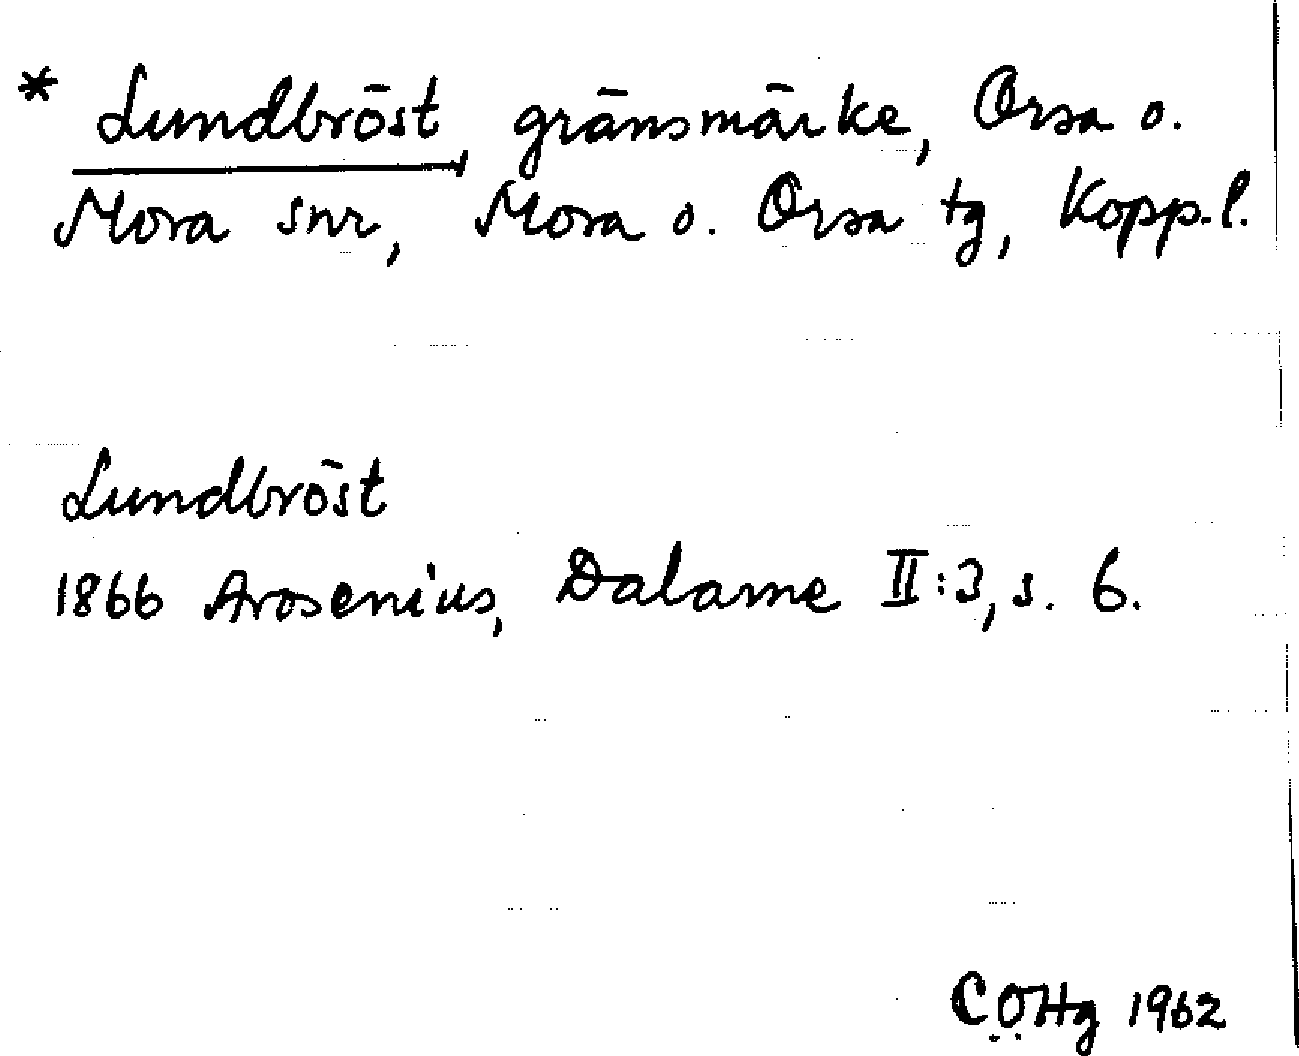 * Lundbröst, gränsmärke, Orsa o.
Mora snr, Mora o. Orsa tg, Kopp.l.
Lundbröst
1866 Arosenius, Dalarne II:3, s. 6.
CÖHg 1962